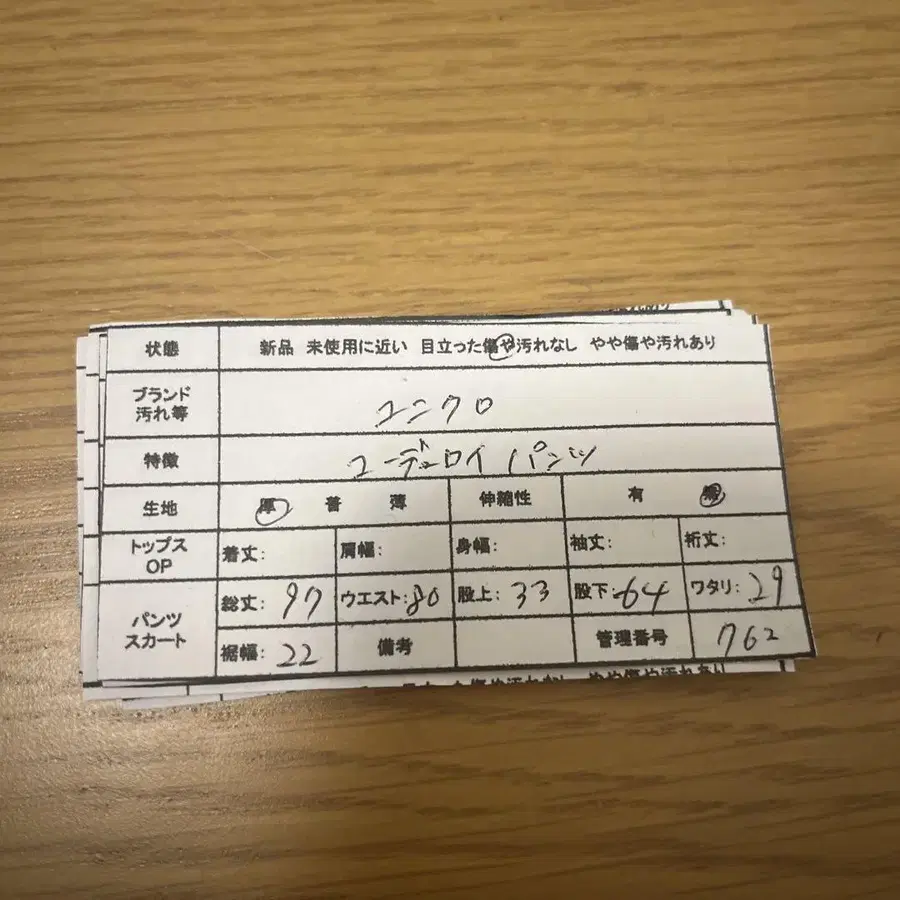 状態 新品 未使用に近い 目立った傷や汚れなし やや傷や汚れあり
ブランド
汚れ等
ユニクロ
特徴 コーデュロイパンツ
生地 厚 普 薄 伸縮性 有 無
トップス
OP
着丈: 肩幅: 身幅: 袖丈: 裄丈:
パンツ
スカート
総丈: 97 ウエスト: 80 股上: 33 股下: 64 ワタリ: 29
裾幅: 22 備考 管理番号 762
やや傷や汚れあり